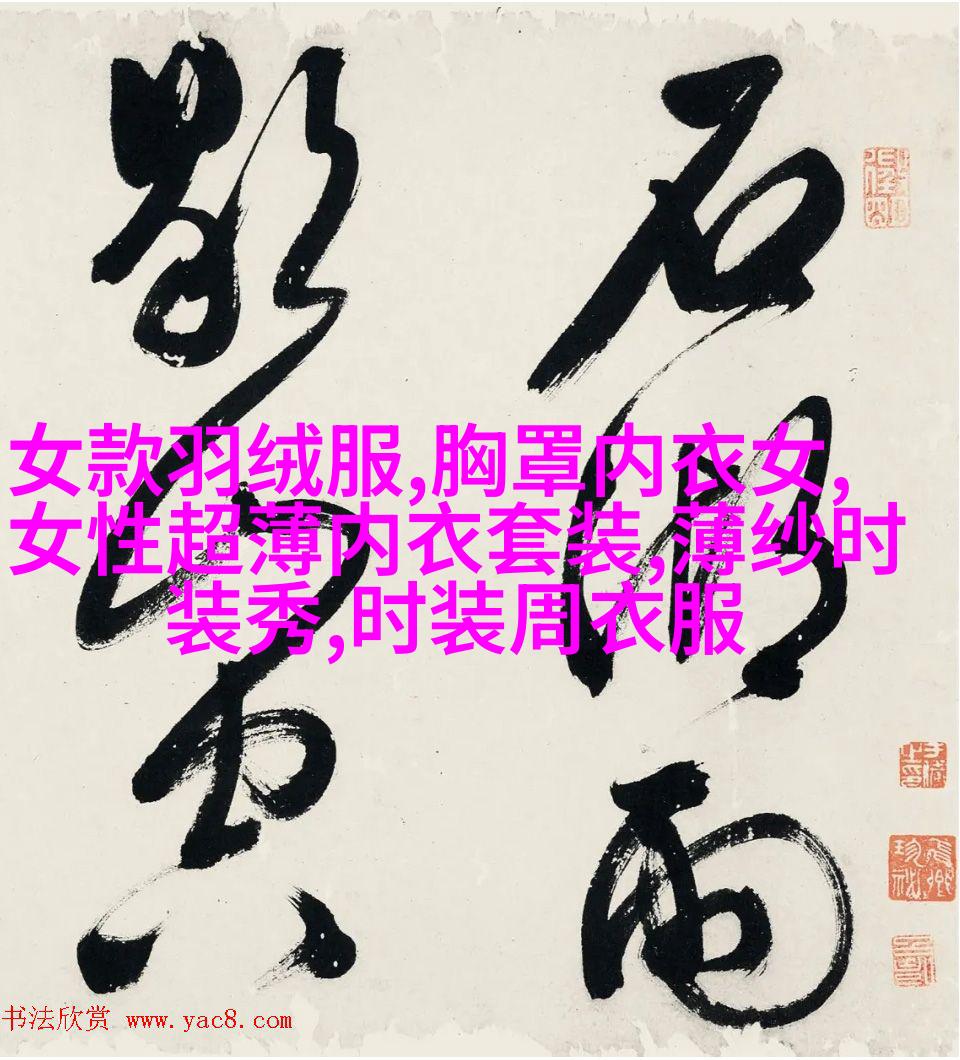 石湖雨
歇山空
女款羽绒服,胸罩内衣女,
女性超薄内衣套装,薄纱时
装秀,时装周衣服
书法欣赏 www.yac8.com